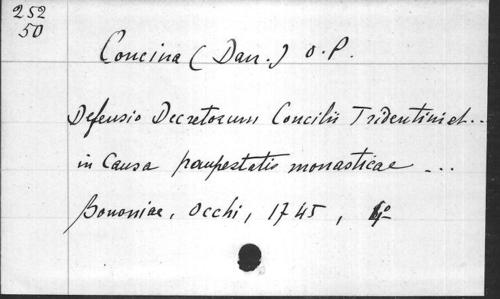 252
50
Concina (Dan.) O.P.
Defensio Decretorum Concilii Tridentini et..
in Causa paupestatis monasticae ...
Bononiae, Occhi, 1745, 4º